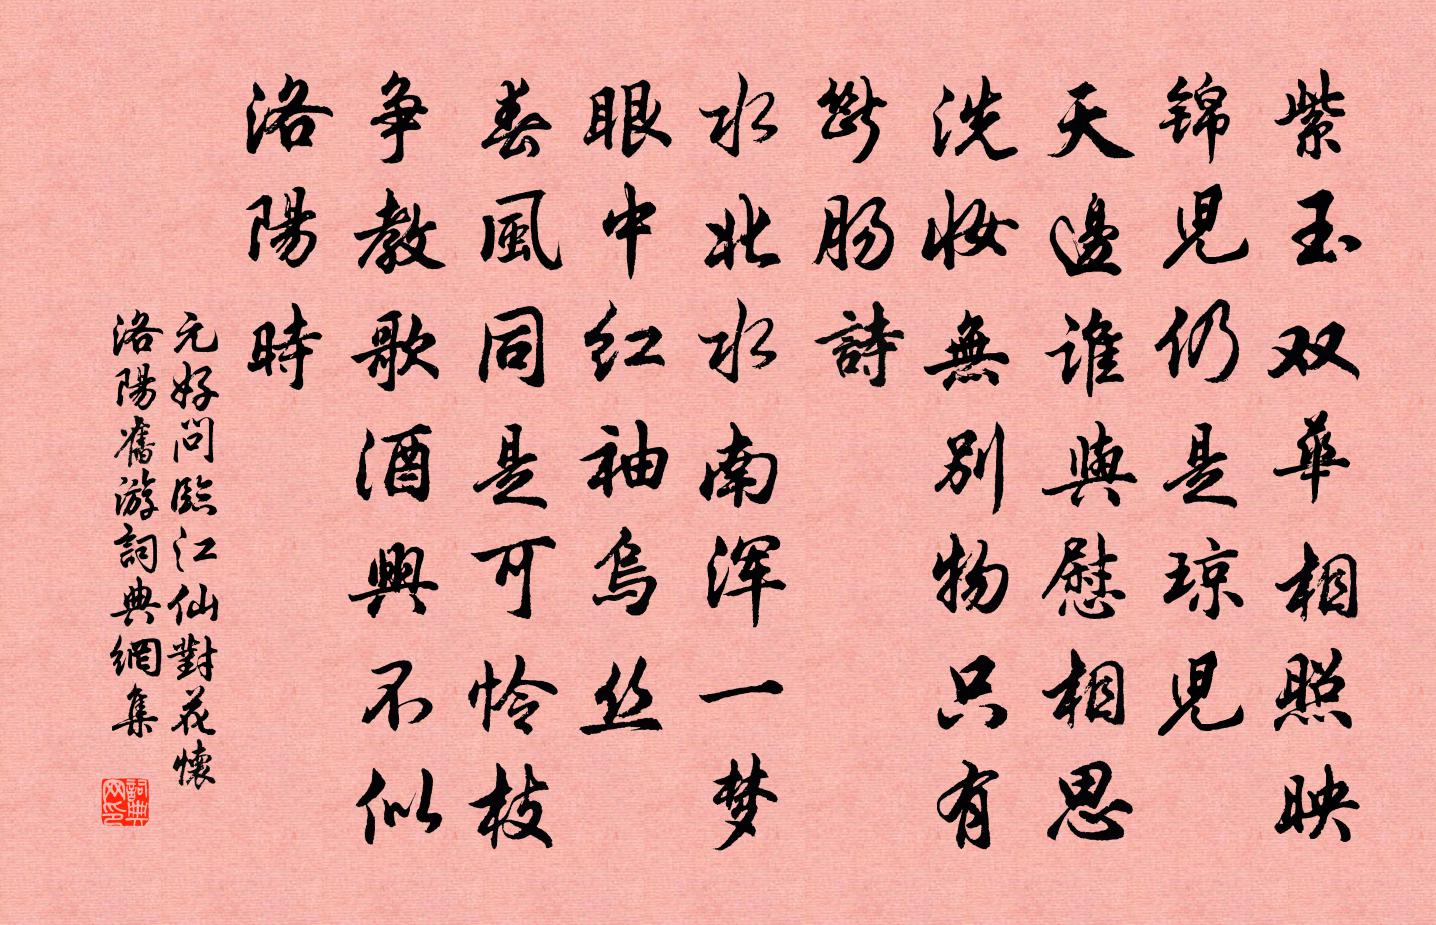 紫玉双華相照映
锦児仍是琼児
天邊谁與慰相思
洗妆無别物只有
斷肠詩
水北水南浑一梦
眼中红袖烏丝
春風同是可怜枝
争教歌酒興不似
洛陽時
元好問臨江仙對花懷
洛陽舊游詞典網集
詞典
网印